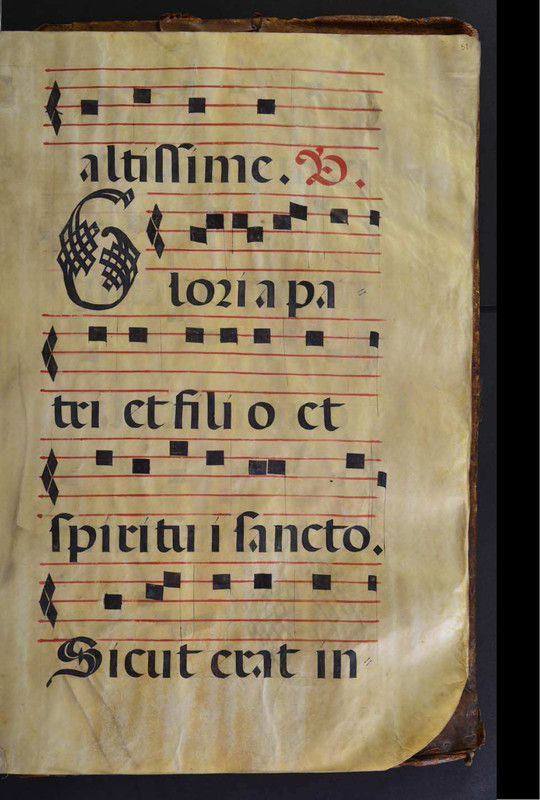 altissime. V.
Gloria pa
tri et filio et
spiritui sancto.
Sicut erat in